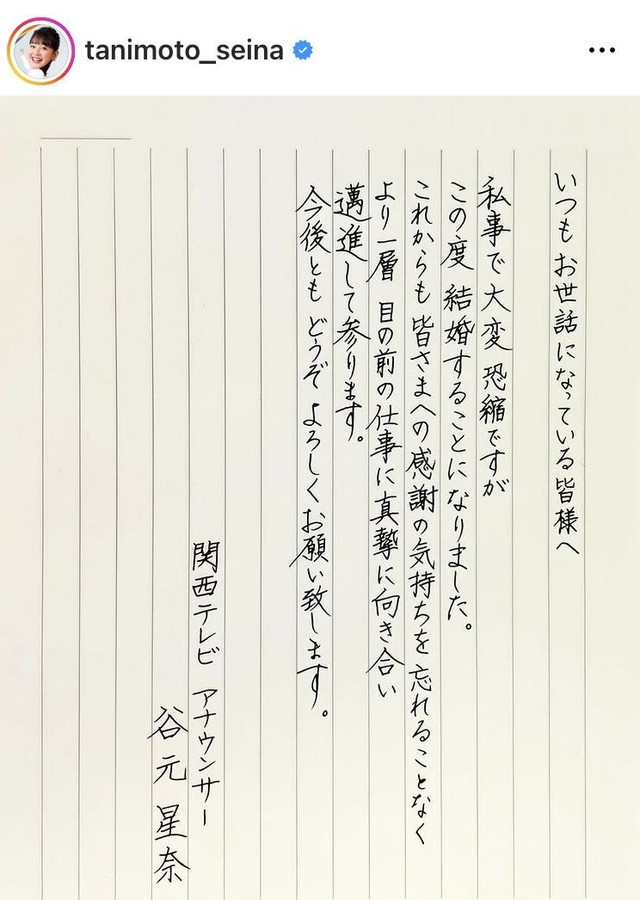 tanimoto_seina
いつもお世話になっている皆様へ
私事で大変恐縮ですが
この度 結婚することになりました。
これからも 皆さまへの感謝の気持ちを忘れることなく
より一層 目の前の仕事に真摯に向き合い
邁進して参ります。
今後とも どうぞ よろしくお願い致します。
関西テレビ アナウンサー
谷元 星奈